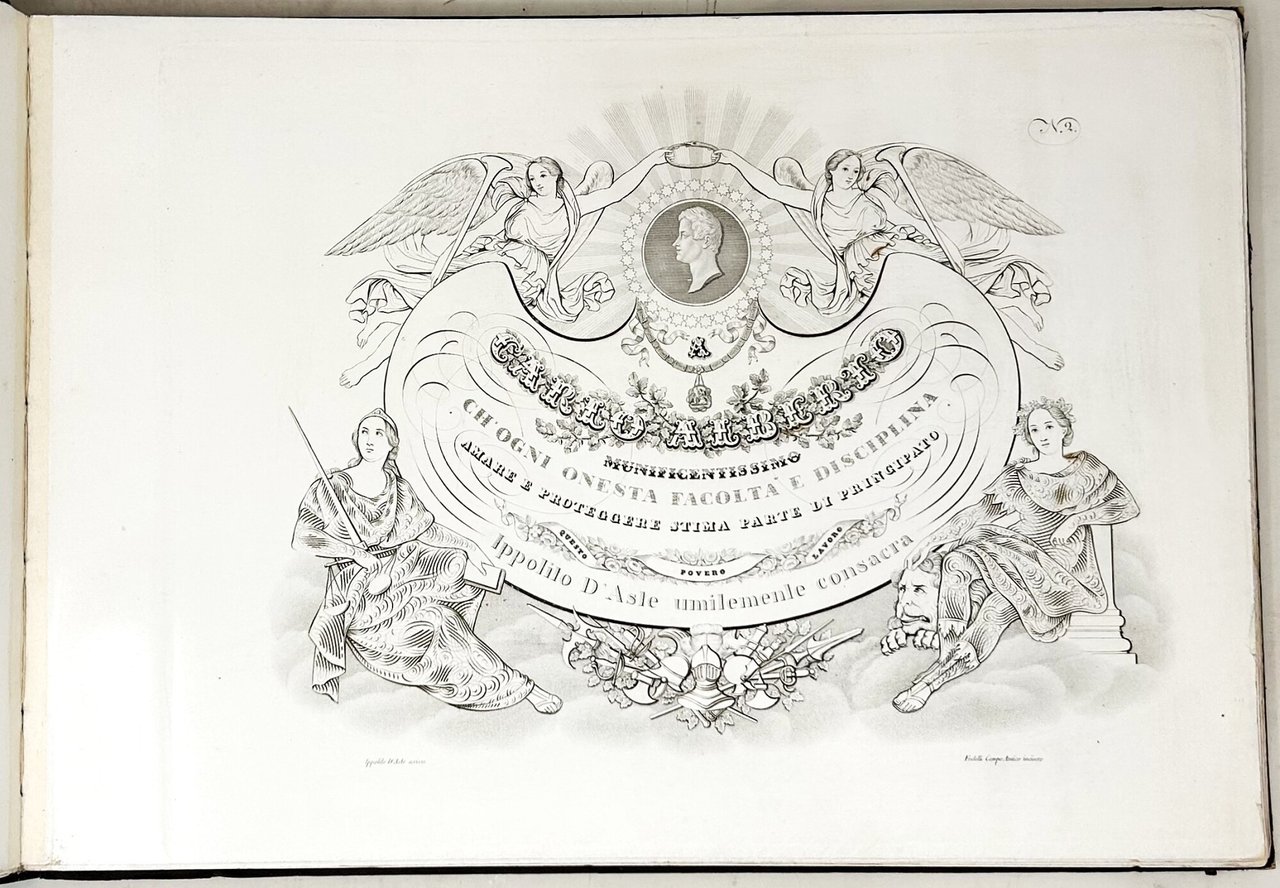 N. 2.
A
CARLO ALBERTO
MUNIFICENTISSIMO
CH'OGNI ONESTA FACOLTA' E DISCIPLINA
AMARE E PROTEGGERE STIMA PARTE DI PRINCIPATO
QUESTO POVERO LAVORO
Ippolito D'Aste umilemente consacra
Ippolito D'Aste scrisse
Fratelli Campo Antico incisero